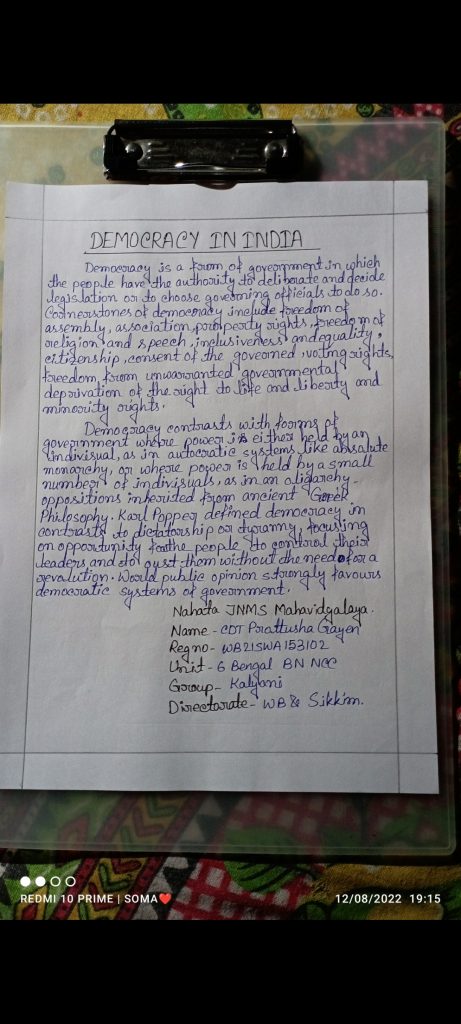 DEMOCRACY IN INDIA
Democracy is a form of government in which
the people have the authority to deliberate and decide
legislation or to choose governing officials to do so.
Cornerstones of democracy include freedom of
assembly, association, property rights, freedom of
religion and speech, inclusiveness and equality,
citizenship, consent of the governed, voting rights,
freedom from unwarranted governmental
deprivation of the right to life and liberty and
minority rights.
Democracy contrasts with forms of
government where power is either held by an
indivisual, as in autocratic systems like absolute
monarchy, or where power is held by a small
number of indivisuals, as in an oligarchy -
oppositions inherited from ancient Greek
Philosophy. Karl Popper defined democracy in
contrasts to dictatorship or tyranny, focusing
on opportunity for the people to control their
leaders and to oust them without the need for a
revolution. World public opinion strongly favours
democratic systems of government.
Nahata JNMS Mahavidyalaya.
Name - CDT Prattusha Gayen
Regno - WB21SWA153102
Unit - 6 Bengal BN NCC
Group - Kalyani
Directorate - WB & Sikkim.
REDMI 10 PRIME | SOMA❤
12/08/2022 19:15